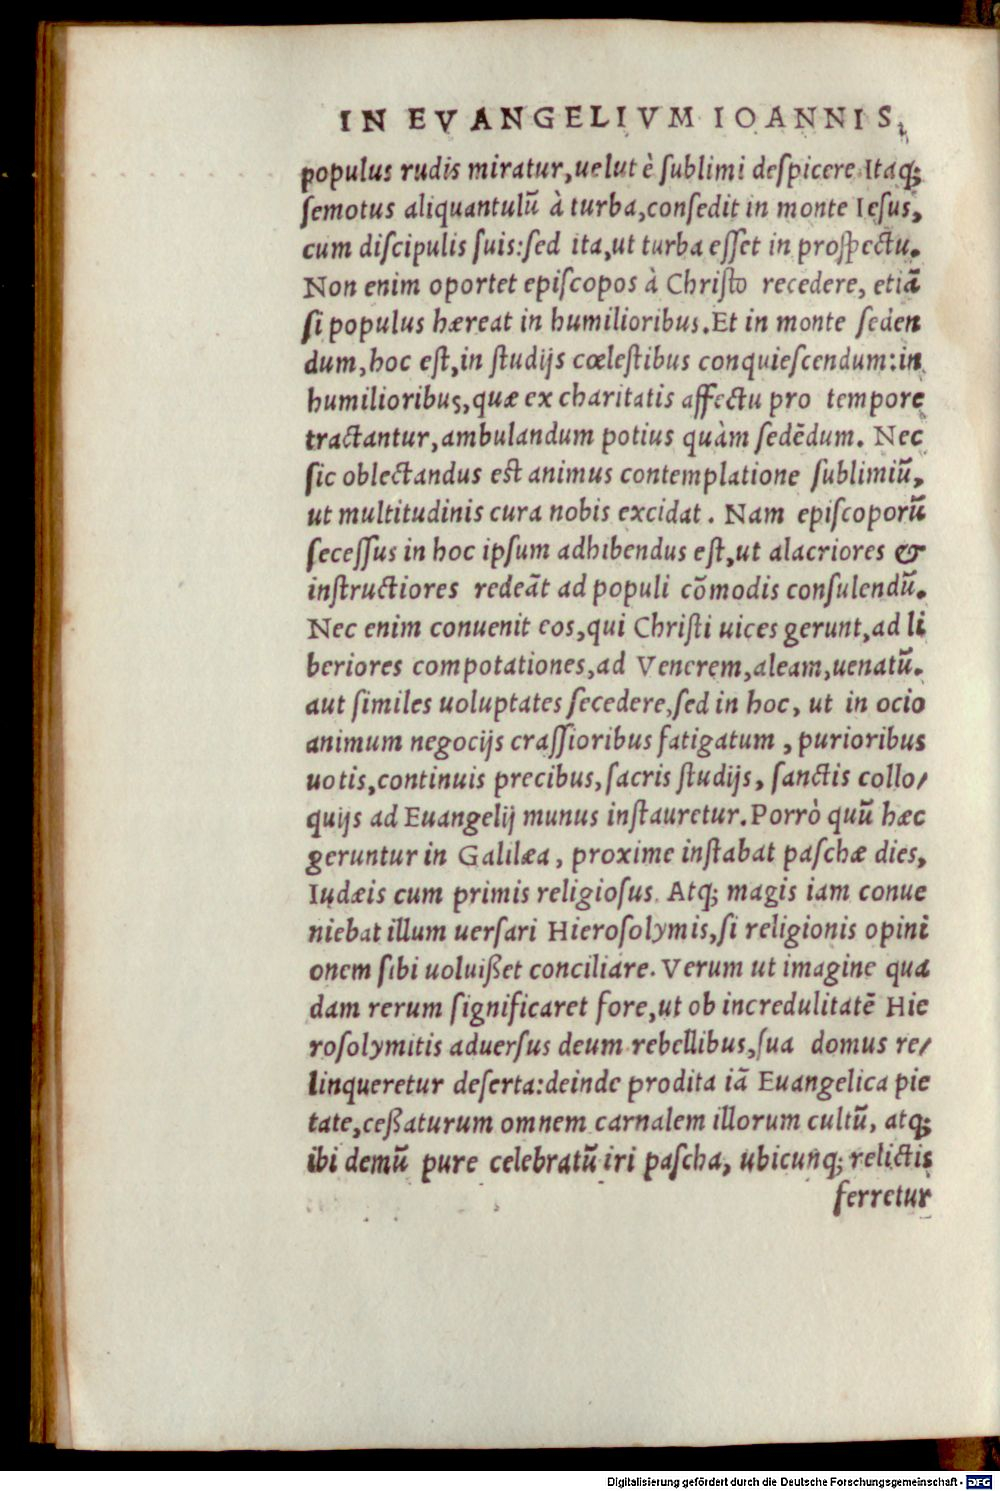 IN EVANGELIVM IOANNIS,
populus rudis miratur,uelut è ſublimi deſpicere. Itaq;
ſemotus aliquantulū à turba,conſedit in monte Ieſus,
cum diſcipulis ſuis:ſed ita,ut turba eſſet in proſpectu.
Non enim oportet epiſcopos à Chriſto recedere, etiā
ſi populus hæreat in humilioribus.Et in monte ſeden
dum,hoc eſt,in ſtudijs cœleſtibus conquieſcendum:in
humilioribus,quæ ex charitatis affectu pro tempore
tractantur,ambulandum potius quàm ſedēdum. Nec
ſic oblectandus eſt animus contemplatione ſublimiū,
ut multitudinis cura nobis excidat. Nam epiſcoporū
ſeceſſus in hoc ipſum adhibendus eſt,ut alacriores &
inſtructiores redeāt ad populi cōmodis conſulendū.
Nec enim conuenit eos,qui Chriſti uices gerunt,ad li
beriores compotationes,ad Venerem,aleam,uenatū.
aut ſimiles uoluptates ſecedere,ſed in hoc, ut in ocio
animum negocijs craſſioribus fatigatum, purioribus
uotis,continuis precibus,ſacris ſtudijs, ſanctis collo/
quijs ad Euangelij munus inſtauretur.Porrò quū hæc
geruntur in Galilæa, proxime inſtabat paſchæ dies,
Iudæis cum primis religioſus. Atq; magis iam conue
niebat illum uerſari Hieroſolymis,ſi religionis opini
onem ſibi uoluißet conciliare. Verum ut imagine qua
dam rerum ſignificaret fore,ut ob incredulitatē Hie
roſolymitis aduerſus deum rebellibus,ſua domus re/
linqueretur deſerta:deinde prodita iā Euangelica pie
tate,ceßaturum omnem carnalem illorum cultū, atq;
ibi demū pure celebratū iri paſcha, ubicunq; relictis
ferretur
Digitalisierung gefördert durch die Deutsche Forschungsgemeinschaft - DFG